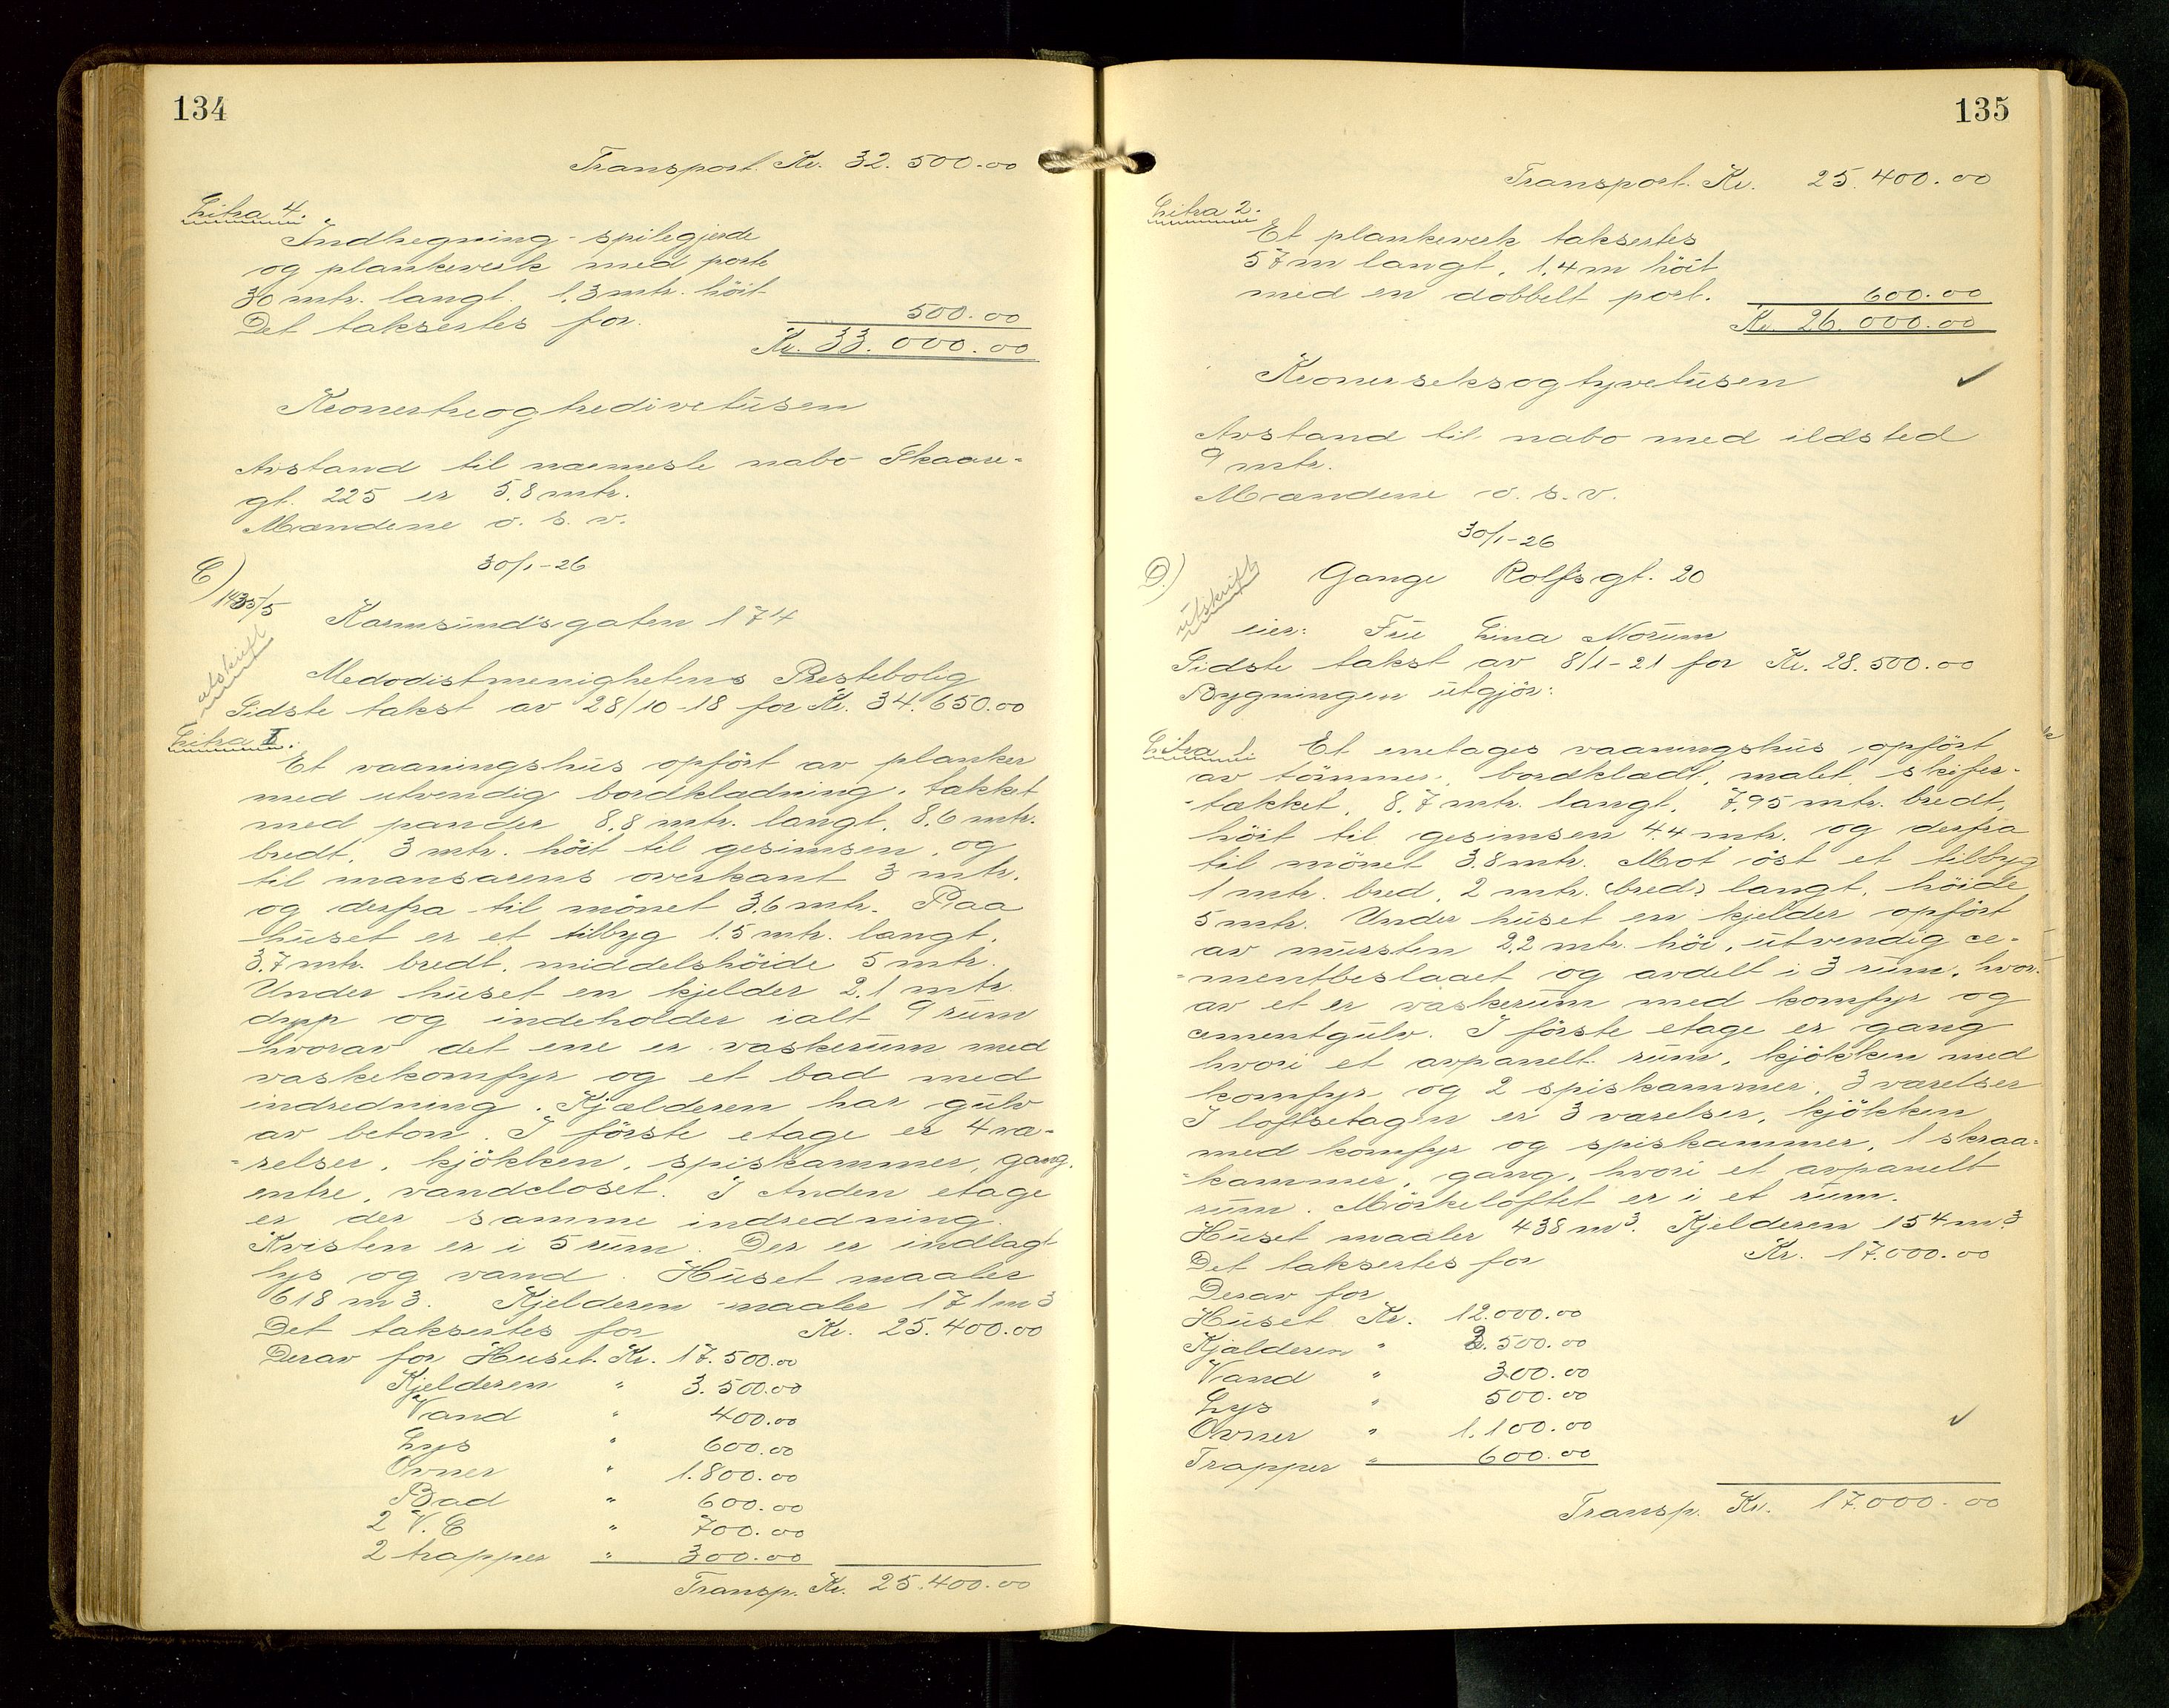 134
Transport. Kr. 32.500.00
Litra 4.
Indhegning - spilegjerde
og plankeverk med porte
30 mtr. langt. 1.3 mtr. höit
Det taksertes for. 500.00
Kr. 33.000.00
Kronertreogtredivetusen
Avstand til nærmeste nabo Skaare-
gt. 225 er 5.8 mtr.
Mændene o. s. v.
30/1-26
C)
1435/5
Karmsundsgaten 174
utskrift
Medodistmenighetens Prestebolig
Sidste takst av 28/10-18 for Kr. 34.650.00
Litra I.
Et vaaningshus opfört av planker
med utvendig bordklædning, takket
med pander 8.8 mtr. langt. 8.6 mtr.
bredt, 3 mtr. höit til gesimsen, og
til mansarens overkant 3 mtr.
og derfra til mönet 3.6 mtr. Paa
huset er et tilbyg 1.5 mtr. langt.
3.7 mtr. bredt. middelshöide 5 mtr.
Under huset en kjelder 2.1 mtr.
dypp og indeholder ialt 9 rum
hvorav det ene er vaskerum med
vaskekomfyr og et bad med
indredning. Kjælderen har gulv
av beton. I förste etage er 4 væ-
-relser, kjökken, spiskammer, gang,
entre, vandcloset. I Anden etage
er der samme indredning.
Kvisten er i 5 rum. Der er indlagt
lys og vand. Huset maaler
618 m3. Kjelderen maaler 171 m3
Det taksertes for Kr. 25.400.00
Derav for Huset. Kr. 17.500.00
Kjelderen " 3.500.00
Vand " 400.00
Lys " 600.00
Ovner " 1.800.00
Bad " 600.00
2 V.C " 700.00
2 trapper " 300.00
Transp. Kr. 25.400.00
135
Transport. Kr. 25.400.00
Litra 2.
Et plankeverk taksertes
57 m langt, 1.4 m höit
med en dobbelt port. 600.00
Kr. 26.000.00
Kronerseksogtyvetusen ✓
Avstand til nabo med ildsted
9 mtr.
Mændene o. s. v.
30/1-26
D)
utskrift
Gange Rolfs gt. 20
eier: Frue Lina Norum
Sidste takst av 8/1-21 for Kr. 28.500.00
Bygningen utgjör:
Litra 1. Et enetages vaaningshus opfört
av tömmer, bordklædt, malet, skifer-
-tækket, 8.7 mtr. langt, 7.95 mtr. bredt,
höit til gesimsen 4.4 mtr. og derfra
til mönet 3.8 mtr. Mot öst et tilbyg
1 mtr. bred, 2 mtr. (bred) langt, höide
5 mtr. Under huset en kjelder opfört
av mursten 2.2 mtr. höi, utvendig ce-
-mentbeslaaet og avdelt i 3 rum, hvor-
av et er vaskerum med komfyr og
cementgulv. I förste etage er gang
hvori et avpanelt rum, kjökken med
komfyr og 2 spiskammer, 3 værelser
I loftsetagen er 3 værelser, kjökken
med komfyr og spiskammer, 1 skraa-
-kammer, gang, hvori et avpanelt
rum. Mörkeloftet er i et rum.
Huset maaler 438 m3. Kjelderen 154 m3
Det taksertes for Kr. 17.000.00
Derav for
Huset Kr. 12.000.00
Kjælderen " 2.500.00
Vand " 300.00
Lys " 500.00
Ovner " 1.100.00 ✓
Trapper " 600.00
Transp. Kr. 17.000.00